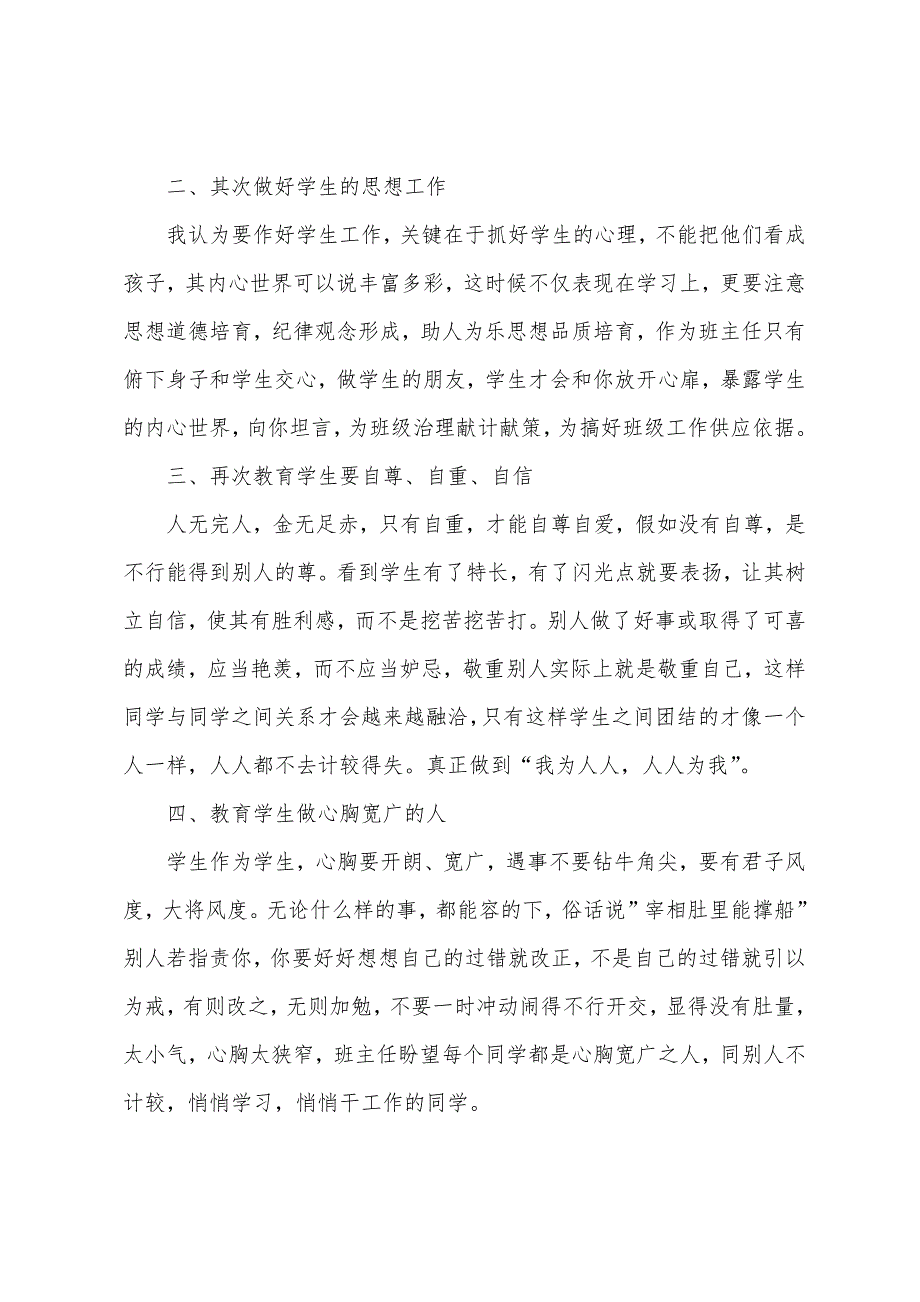 二、其次做好学生的思想工作
我认为要作好学生工作，关键在于抓好学生的心理，不能把他们看成
孩子，其内心世界可以说丰富多彩，这时候不仅表现在学习上，更要注意
思想道德培育，纪律观念形成，助人为乐思想品质培育，作为班主任只有
俯下身子和学生交心，做学生的朋友，学生才会和你放开心扉，暴露学生
的内心世界，向你坦言，为班级治理献计献策，为搞好班级工作供应依据。
三、再次教育学生要自尊、自重、自信
人无完人，金无足赤，只有自重，才能自尊自爱，假如没有自尊，是
不行能得到别人的尊。看到学生有了特长，有了闪光点就要表扬，让其树
立自信，使其有胜利感，而不是挖苦挖苦打。别人做了好事或取得了可喜
的成绩，应当艳羡，而不应当妒忌，敬重别人实际上就是敬重自己，这样
同学与同学之间关系才会越来越融洽，只有这样学生之间团结的才像一个
人一样，人人都不去计较得失。真正做到“我为人人，人人为我”。
四、教育学生做心胸宽广的人
学生作为学生，心胸要开朗、宽广，遇事不要钻牛角尖，要有君子风
度，大将风度。无论什么样的事，都能容的下，俗话说”宰相肚里能撑船”
别人若指责你，你要好好想想自己的过错就改正，不是自己的过错就引以
为戒，有则改之，无则加勉，不要一时冲动闹得不行开交，显得没有肚量，
太小气，心胸太狭窄，班主任盼望每个同学都是心胸宽广之人，同别人不
计较，悄悄学习，悄悄干工作的同学。